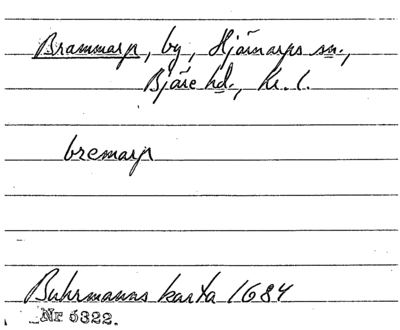 Brammarp, by, Hjärnarps sn.,
Bjäre hd., Kr. l.
bremarp
Buhrmanns karta 1684
Nr 6322.